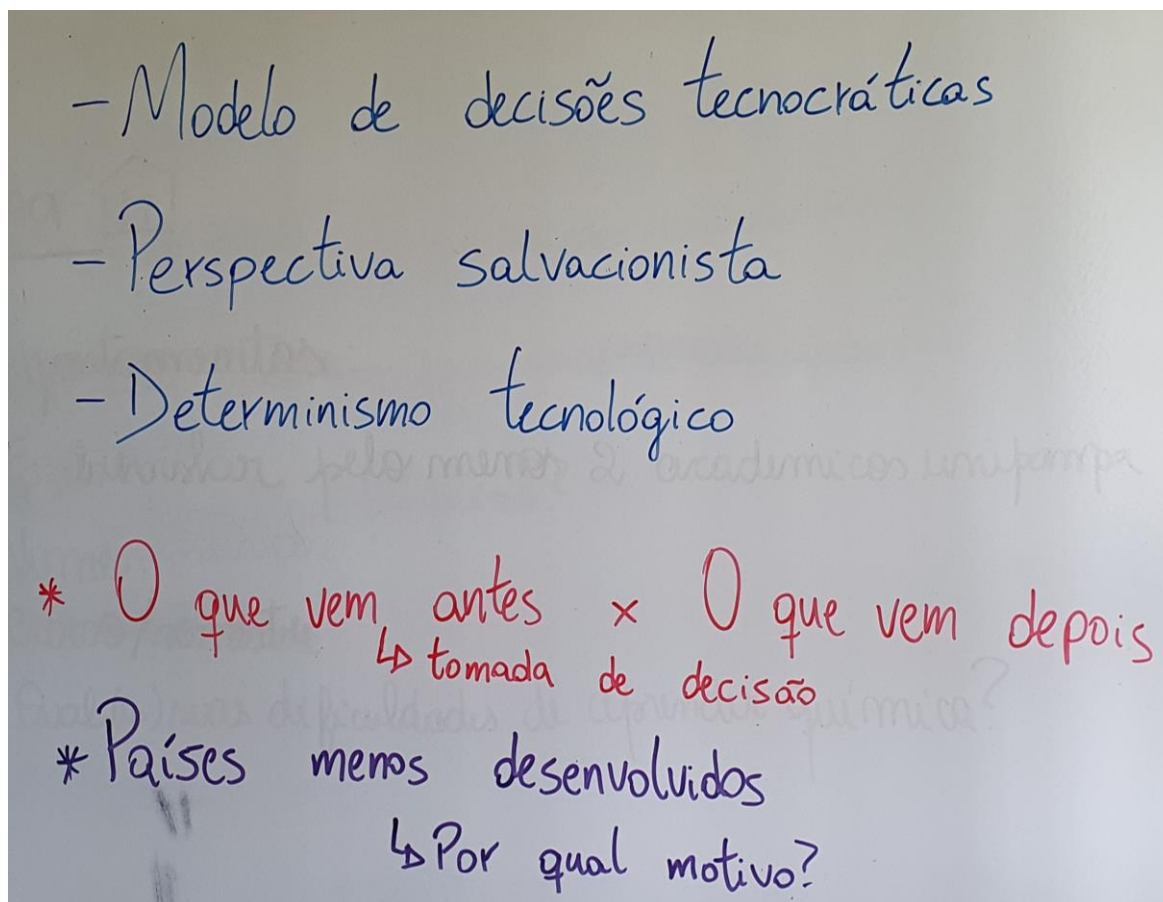 - Modelo de decisões tecnocráticas
- Perspectiva salvacionista
- Determinismo tecnológico
* O que vem antes x O que vem depois
↳ tomada de decisão
* Países menos desenvolvidos
↳ Por qual motivo?